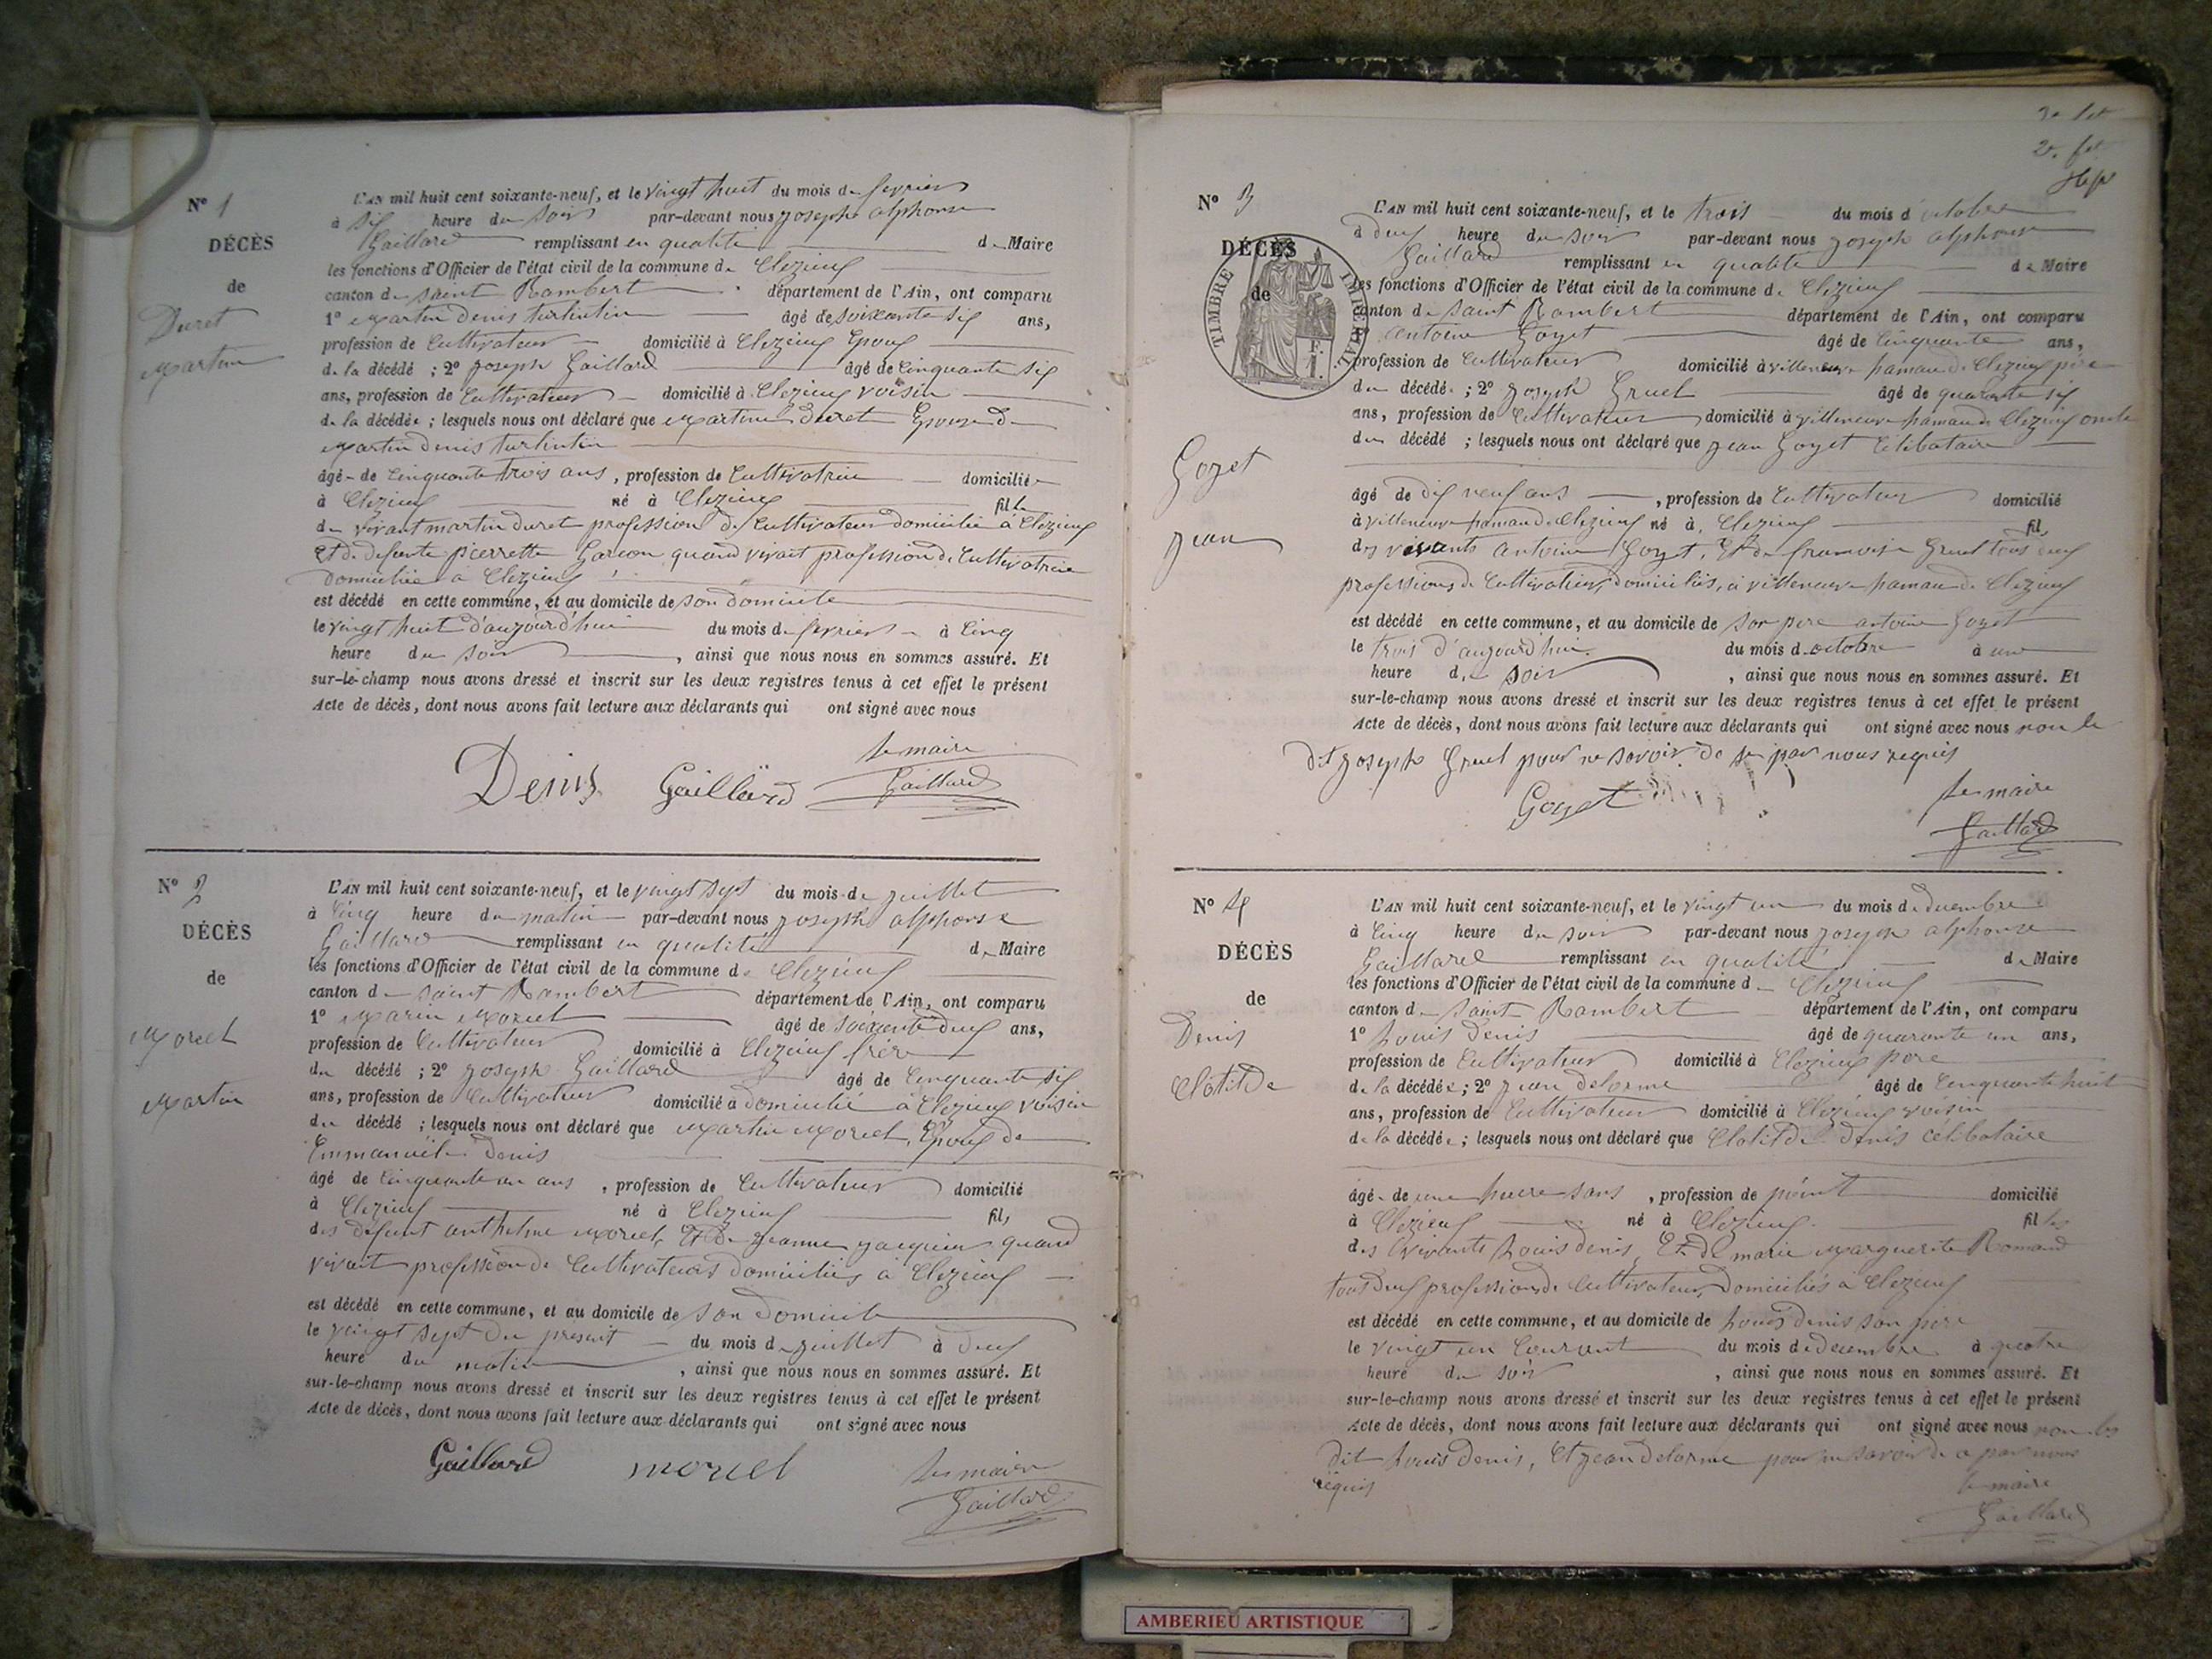 N° 1
DÉCÈS
de
Duret
Martine
L'AN mil huit cent soixante-neuf, et le vingt huit du mois de fevrier
à six heure du soir par-devant nous joseph alphonse
Gaillard remplissant en qualité de Maire
les fonctions d'Officier de l'état civil de la commune de Clezieux
canton de saint Rambert département de l'Ain, ont comparu
1° Martin denis turlintin âgé de soixante six ans,
profession de Cultivateur domicilié à Clezieux Epoux
de la décédé ; 2° joseph Gaillard âgé de Cinquante six
ans, profession de Cultivateur domicilié à Clezieux voisin
de la décédée ; lesquels nous ont déclaré que Martine duret Epouse de
Martin denis turlintin
âgé-de Cinquante trois ans, profession de Cultivatrice domiciliée
à Clezieux né à Clezieux fille
de vivant martin duret profession de Cultivateur domicilié à Clezieux
Et de defunte pierrette Garcon quand vivait profession de Cultivatrice
domiciliée à Clezieux
est décédé en cette commune, et au domicile de son domicile
le vingt huit d'aujourd'hui du mois de fevrier à Cinq
heure du soir, ainsi que nous nous en sommes assuré. Et
sur-le-champ nous avons dressé et inscrit sur les deux registres tenus à cet effet le présent
Acte de décès, dont nous avons fait lecture aux déclarants qui ont signé avec nous
Le maire
Denis Gaillard Gaillard
N° 2
DÉCÈS
de
Moriel
Martin
L'AN mil huit cent soixante-neuf, et le vingt sept du mois de juillet
à Cinq heure du matin par-devant nous joseph alphonse
Gaillard remplissant en qualité de Maire
les fonctions d'Officier de l'état civil de la commune de Clezieux
canton de saint Rambert département de l'Ain, ont comparu
1° Marin Moriel âgé de soixante deux ans,
profession de Cultivateur domicilié à Clezieux frère
du décédé ; 2° joseph Gaillard âgé de Cinquante six
ans, profession de Cultivateur domicilié à domicilié à Clezieux voisin
du décédé ; lesquels nous ont déclaré que Martin Moriel, Epoux de
Emmanuële Denis
âgé de Cinquante un ans, profession de Cultivateur domicilié
à Clezieux né à Clezieux fils
des défunt anthelme Moriel, Et de jeanne jacquin quand
vivait profession de Cultivateurs domiciliés à Clezieux
est décédé en cette commune, et au domicile de son domicile
le vingt sept du présent du mois de juillet à deux
heure du matin, ainsi que nous nous en sommes assuré. Et
sur-le-champ nous avons dressé et inscrit sur les deux registres tenus à cet effet le présent
Acte de décès, dont nous avons fait lecture aux déclarants qui ont signé avec nous
Gaillard moriel Le maire
Gaillard
N° 3
DÉCÈS
de
TIMBRE IMPERIAL
Goyet
jean
L'AN mil huit cent soixante-neuf, et le trois du mois d'octobre
à deux heure du soir par-devant nous joseph alphonse
Gaillard remplissant en qualité de Maire
les fonctions d'Officier de l'état civil de la commune de Clezieux
canton de saint Rambert département de l'Ain, ont comparu
antoine Goyet âgé de Cinquante ans,
profession de Cultivateur domicilié à villeneuve hamau de Clezieux père
du décédé ; 2° joseph Gruel âgé de quarante six
ans, profession de Cultivateur domicilié à villeneuve hamau de Clezieux oncle
du décédé ; lesquels nous ont déclaré que jean Goyet Célibataire
âgé de dix neuf ans, profession de Cultivateur domicilié
à villeneuve hamau de Clezieux né à Clezieux fils
des vivants antoine Goyet, Et de francoise Gruel tous deux
professions de Cultivateurs, domiciliés, à villeneuve hamau de Clezieux
est décédé en cette commune, et au domicile de son pere antoine Goyet
le trois d'aujourd'hui du mois d'octobre à une
heure du soir, ainsi que nous nous en sommes assuré. Et
sur-le-champ nous avons dressé et inscrit sur les deux registres tenus à cet effet le présent
Acte de décès, dont nous avons fait lecture aux déclarants qui ont signé avec nous non le
dit joseph Gruel pour ne savoir de ce par nous requis
Goyet Le maire
Gaillard
N° 4
DÉCÈS
de
Denis
Clotilde
L'AN mil huit cent soixante-neuf, et le vingt un du mois de decembre
à Cinq heure du soir par-devant nous joseph alphonse
Gaillard remplissant en qualité de Maire
les fonctions d'Officier de l'état civil de la commune de Clezieux
canton de saint Rambert département de l'Ain, ont comparu
1° Louis Denis âgé de quarante un ans,
profession de Cultivateur domicilié à Clezieux pere
de la décédée ; 2° jean delorme âgé de Cinquante huit
ans, profession de Cultivateur domicilié à Clezieux voisin
de la décédée ; lesquels nous ont déclaré que Clotilde Denis célibataire
âgé-de une heure sans, profession de point domicilié
à Clezieux né à Clezieux filles
des vivants Louis denis, Et de marie Marguerite Romand
tous deux professions de Cultivateurs, domiciliés à Clezieux
est décédé en cette commune, et au domicile de Louis denis son père
le vingt un Courant du mois de decembre à quatre
heure du soir, ainsi que nous nous en sommes assuré. Et
sur-le-champ nous avons dressé et inscrit sur les deux registres tenus à cet effet le présent
Acte de décès, dont nous avons fait lecture aux déclarants qui ont signé avec nous non les
dit Louis Denis, Et jean Delorme pour ne savoir de ce par nous
requis
le maire
Gaillard
AMBERIEU ARTISTIQUE